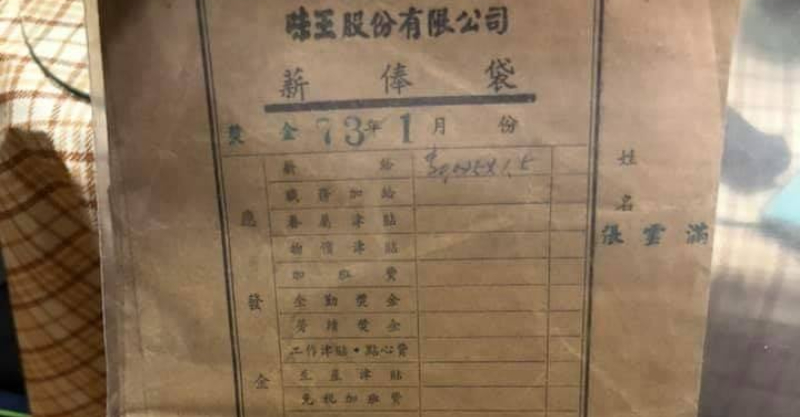 味王股份有限公司
薪俸袋
獎金73年1月份
姓名
張雲滿
應發金
薪給
職務加給
眷屬津貼
物價津貼
加班費
全勤獎金
勞績獎金
工作津貼·點心費
生產津貼
免稅加班費